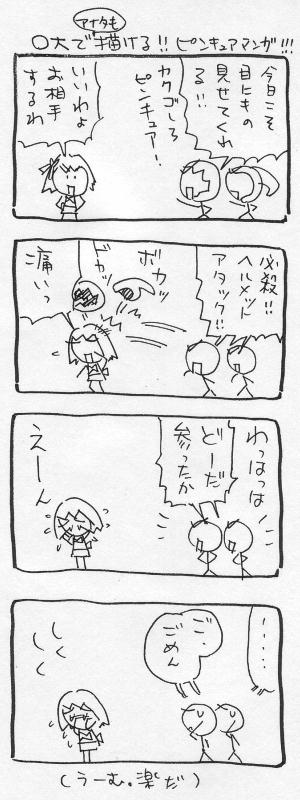 アナタも
〇大で描ける!!ピンキュアマンガ!!!
今日こそ
目にもの
見せてくれ
る!!
カクゴしろ
ピンキュア!
いいわよ
お相手
するわ
必殺!!
ヘルメット
アタック!!
ボカッ
ドカッ
痛いっ
わっはっは
どーだ
参ったか
えーん
・・・・・
ご・
ごめん
しく
しく
(うーむ。楽だ)